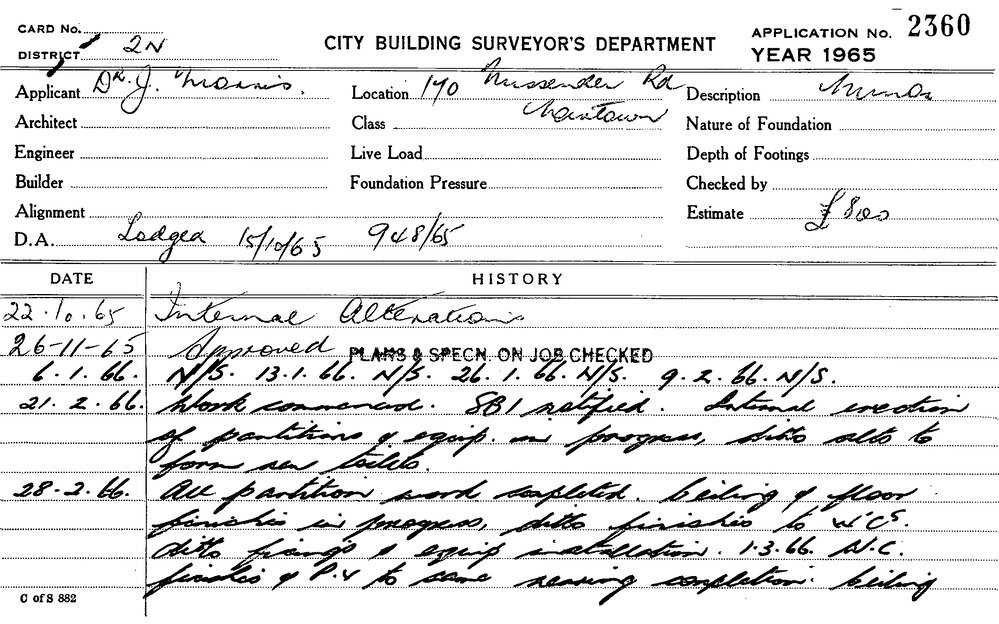 CARD No.
DISTRICT 2N
CITY BUILDING SURVEYOR'S DEPARTMENT
APPLICATION No. 2360
YEAR 1965
Applicant Dr. J. Morris. Location 140 Missenden Rd Description Minor
Architect Class Newtown Nature of Foundation
Engineer Live Load Depth of Footings
Builder Foundation Pressure Checked by
Alignment Estimate £800
D.A. Lodged 15/10/65 948/65
DATE HISTORY
22.10.65 Internal Alterations
26-11-65 Approved PLANS & SPECN. ON JOB CHECKED
6.1.66. N/S. 13.1.66. N/S. 26.1.66. N/S. 9.2.66. N/S.
21.2.66. Work commenced. SBI notified. Internal erection
of partitions & equip. in progress, ditto alts to
form new toilets.
28.2.66. All partition work completed. Ceiling & floor
finishes in progress, ditto finishes to W.C's.
ditto fixings & equip installation. 1.3.66. N.C.
finishes & P.V to same nearing completion. Ceiling
C of S 882